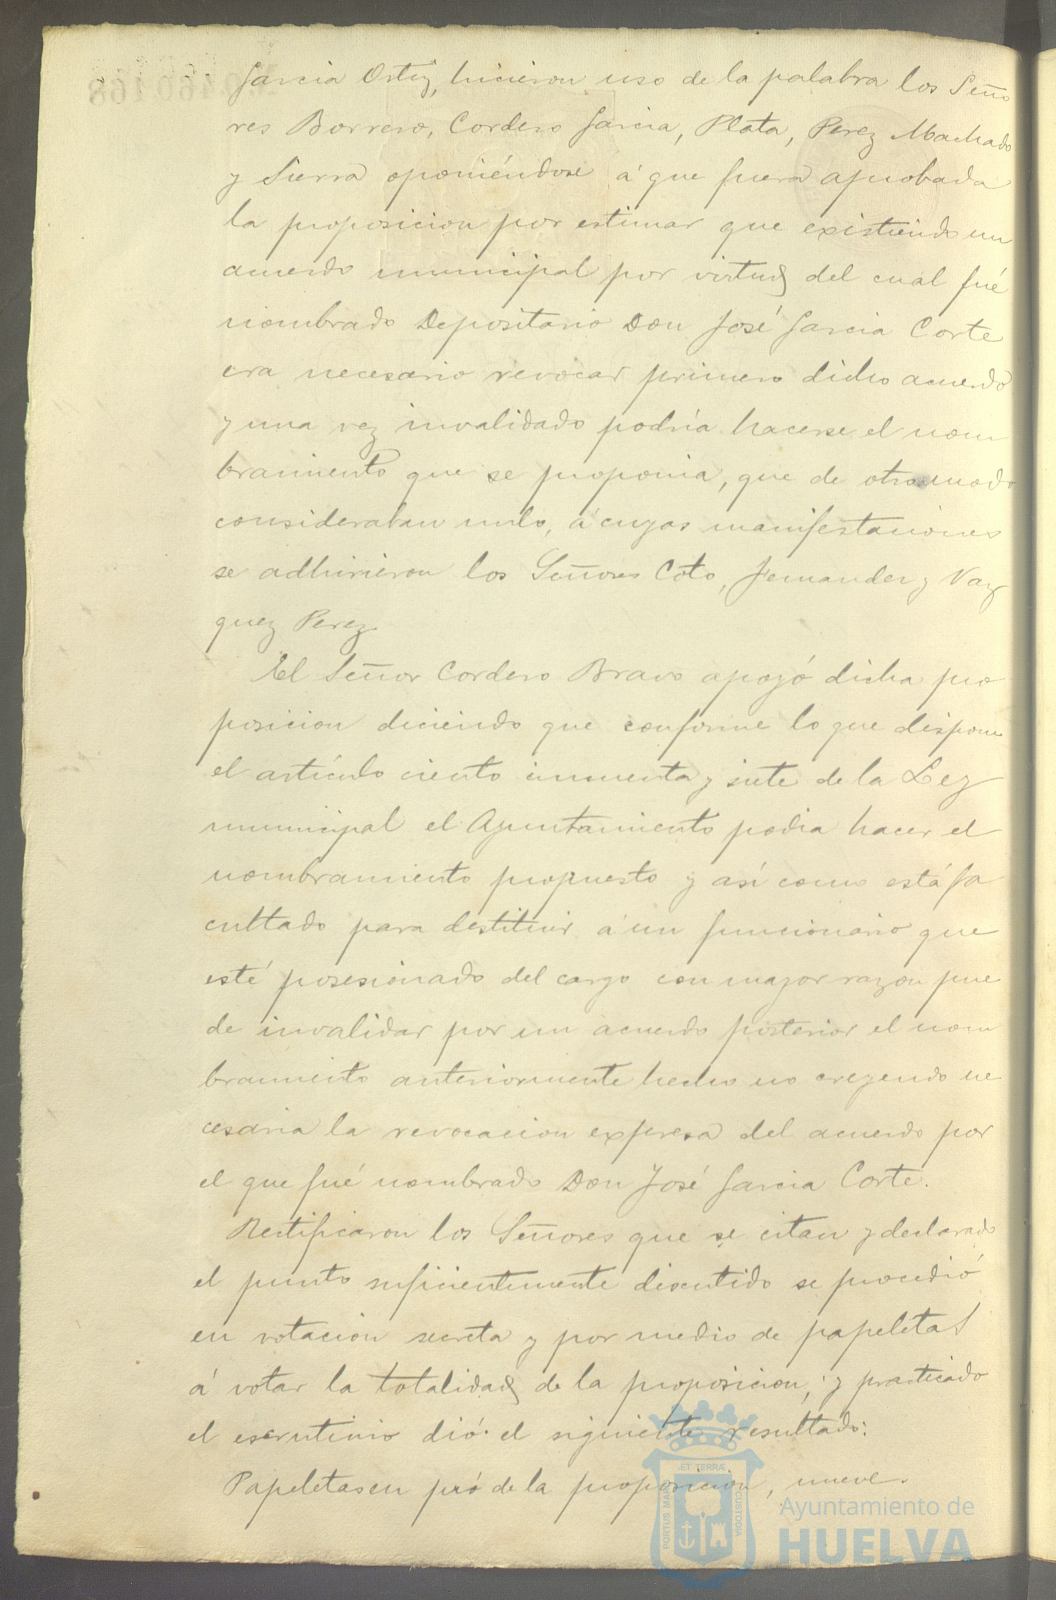 Garcia Ortiz, hicieron uso de la palabra los Seño
res Borrero, Cordero Garcia, Plata, Perez Machado
y Sierra oponiéndose á que fuera aprobada
la proposicion por estimar que existiendo un
acuerdo municipal por virtud del cual fué
nombrado Depositario Don José Garcia Corte
era necesario revocar primero dicho acuerdo
y una vez invalidado podría hacerse el nom
bramiento que se proponia, que de otro modo
consideraban nulo, á cuyas manifestaciones
se adhirieron los Señores Coto, Fernandez y Vaz
quez Perez
El Señor Cordero Bravo apoyó dicha pro
posicion diciendo que conforme lo que dispone
el artículo ciento cincuenta y siete de la Ley
municipal el Ayuntamiento podia hacer el
nombramiento propuesto y así como está fa
cultado para destituir á un funcionario que
esté posesionado del cargo con mayor razon pue
de invalidar por un acuerdo posterior el nom
bramiento anteriormente hecho no creyendo ne
cesaria la revocacion expresa del acuerdo por
el que fué nombrado Don José Garcia Corte.
Rectificaron los Señores que se citan y declarado
el punto suficientemente discutido se procedió
en votacion secreta y por medio de papeletas
á votar la totalidad de la proposicion, y practicado
el escrutinio dió el siguiente resultado:
Papeletas en pró de la proposicion, nueve.
PORTUS MARIS ET TERRÆ CUSTODIA
Ayuntamiento de
HUELVA